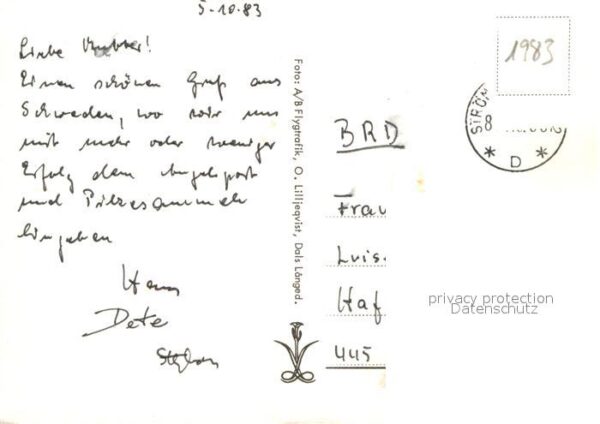 5-10.83
Liebe Mutter!
Einen schönen Gruß aus
Schweden, wo wir uns
mit mehr oder weniger
Erfolg dem Angelsport
und Pilzesammeln
hingeben
Hans
Dete
Stephan
Foto: A/B Flygtrafik, O. Lilljeqvist, Dals Långed.
1983
STRÖM
8
* D *
BRD
Frau
Luis.
Haf
445
privacy protection
Datenschutz